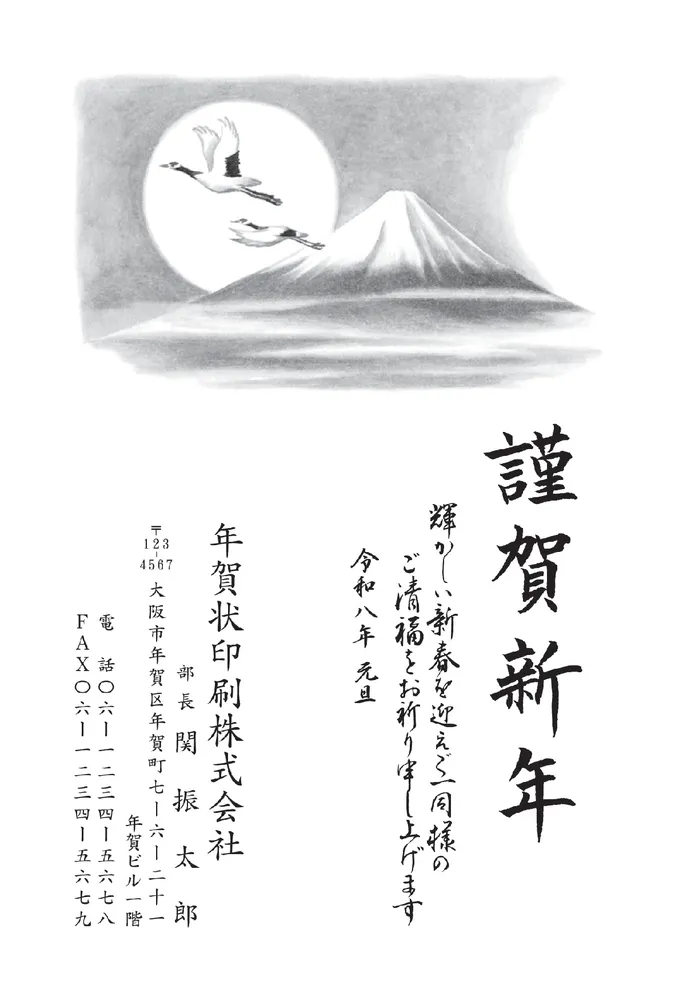 謹賀新年
輝かしい新春を迎えご一同様の
ご清福をお祈り申し上げます
令和八年 元旦
年賀状印刷株式会社
部長 関振太郎
〒123-4567 大阪市年賀区年賀町七ー六ー二十一
年賀ビル一階
電 話〇六ー一二三四ー五六七八
FAX〇六ー一二三四ー五六七九